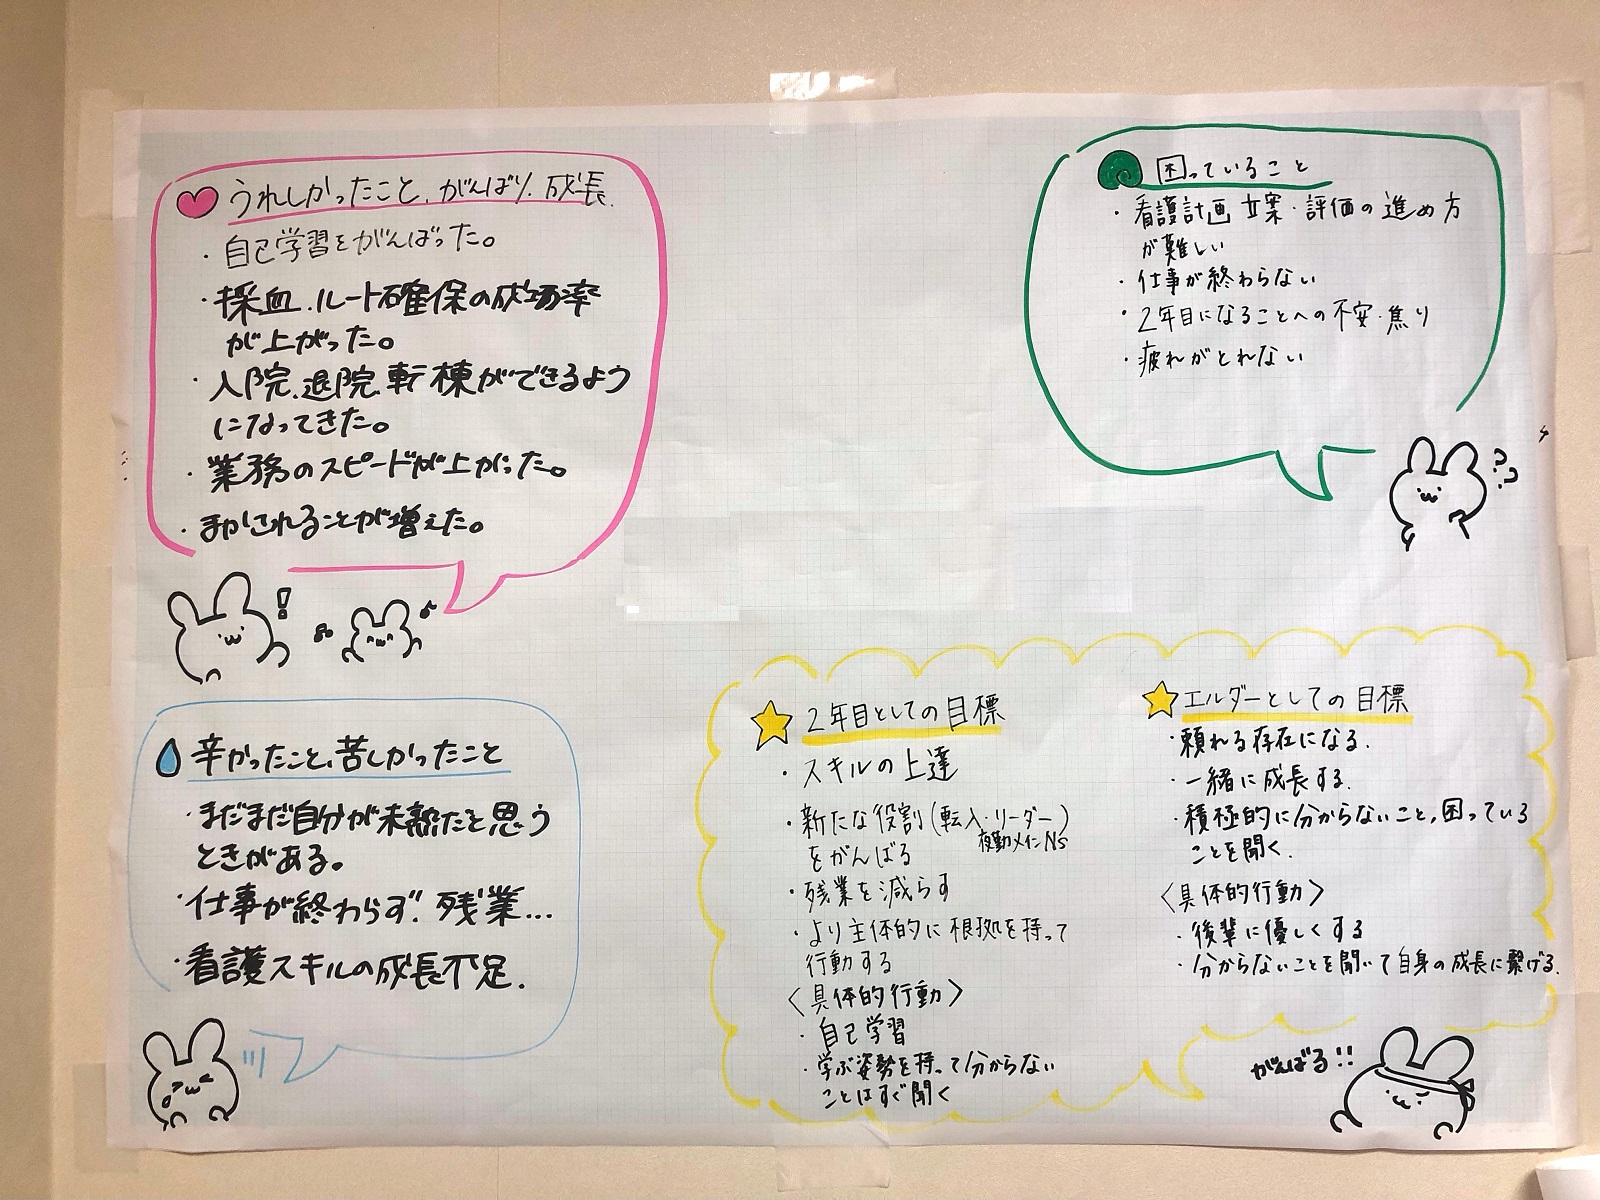 うれしかったこと、がんばり、成長
・自己学習をがんばった。
・採血、ルート確保の成功率
が上がった。
・入院、退院、転棟ができるよう
になってきた。
・業務のスピードが上がった。
・まかされることが増えた。
困っていること
・看護計画立案・評価の進め方
が難しい
・仕事が終わらない
・2年目になることへの不安・焦り
・疲れがとれない
??
辛かったこと、苦しかったこと
・まだまだ自分が未熟だと思う
ときがある。
・仕事が終わらず、残業…
・看護スキルの成長不足.
2年目としての目標
・スキルの上達
・新たな役割(転入・リーダー)
夜勤メインNs
をがんばる
・残業を減らす
・より主体的に根拠を持って
行動する
〈具体的行動〉
・自己学習
・学ぶ姿勢を持って分からない
ことはすぐ聞く
エルダーとしての目標
・頼れる存在になる.
・一緒に成長する.
・積極的に分からないこと,困っている
ことを聞く.
〈具体的行動〉
・後輩に優しくする
・分からないことを聞いて自身の成長に繋げる.
がんばる!!